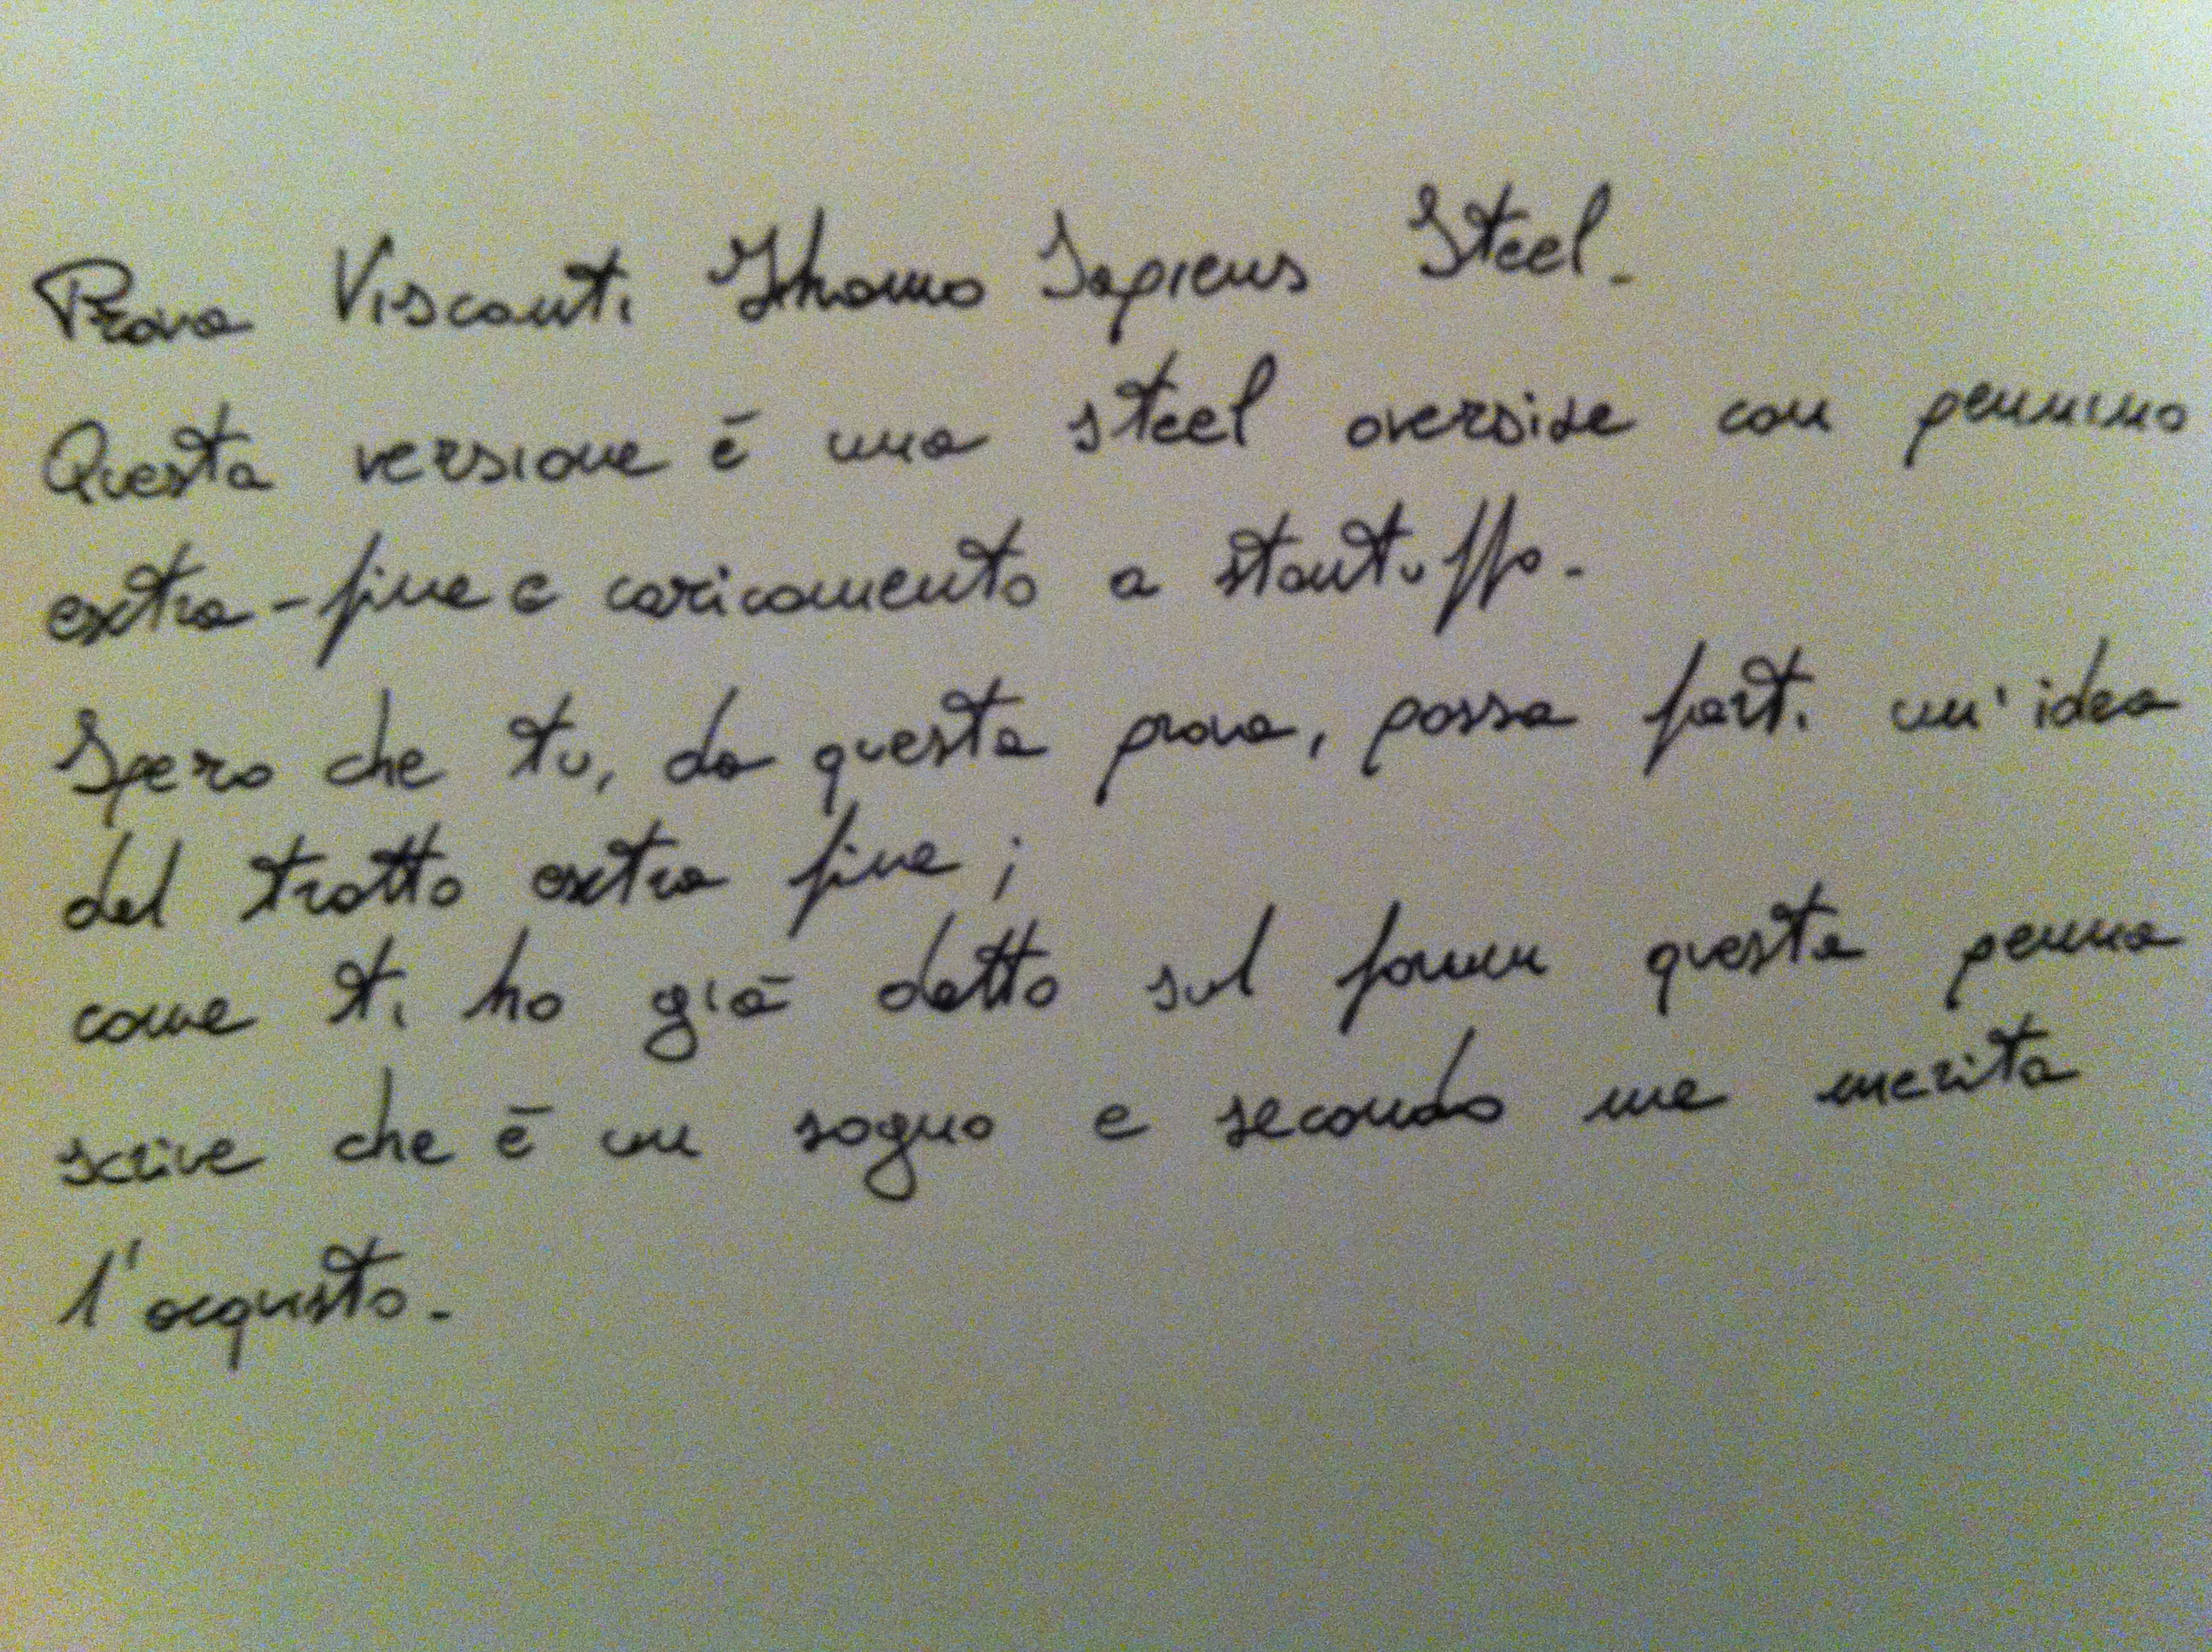 Prova Visconti Homo Sapiens Steel.
Questa versione è una steel oversize con pennino
extra-fine e caricamento a stantuffo.
Spero che tu, da questa prova, possa farti un'idea
del tratto extra fine;
come ti ho già detto sul forum questa penna
scrive che è un sogno e secondo me merita
l'acquisto.